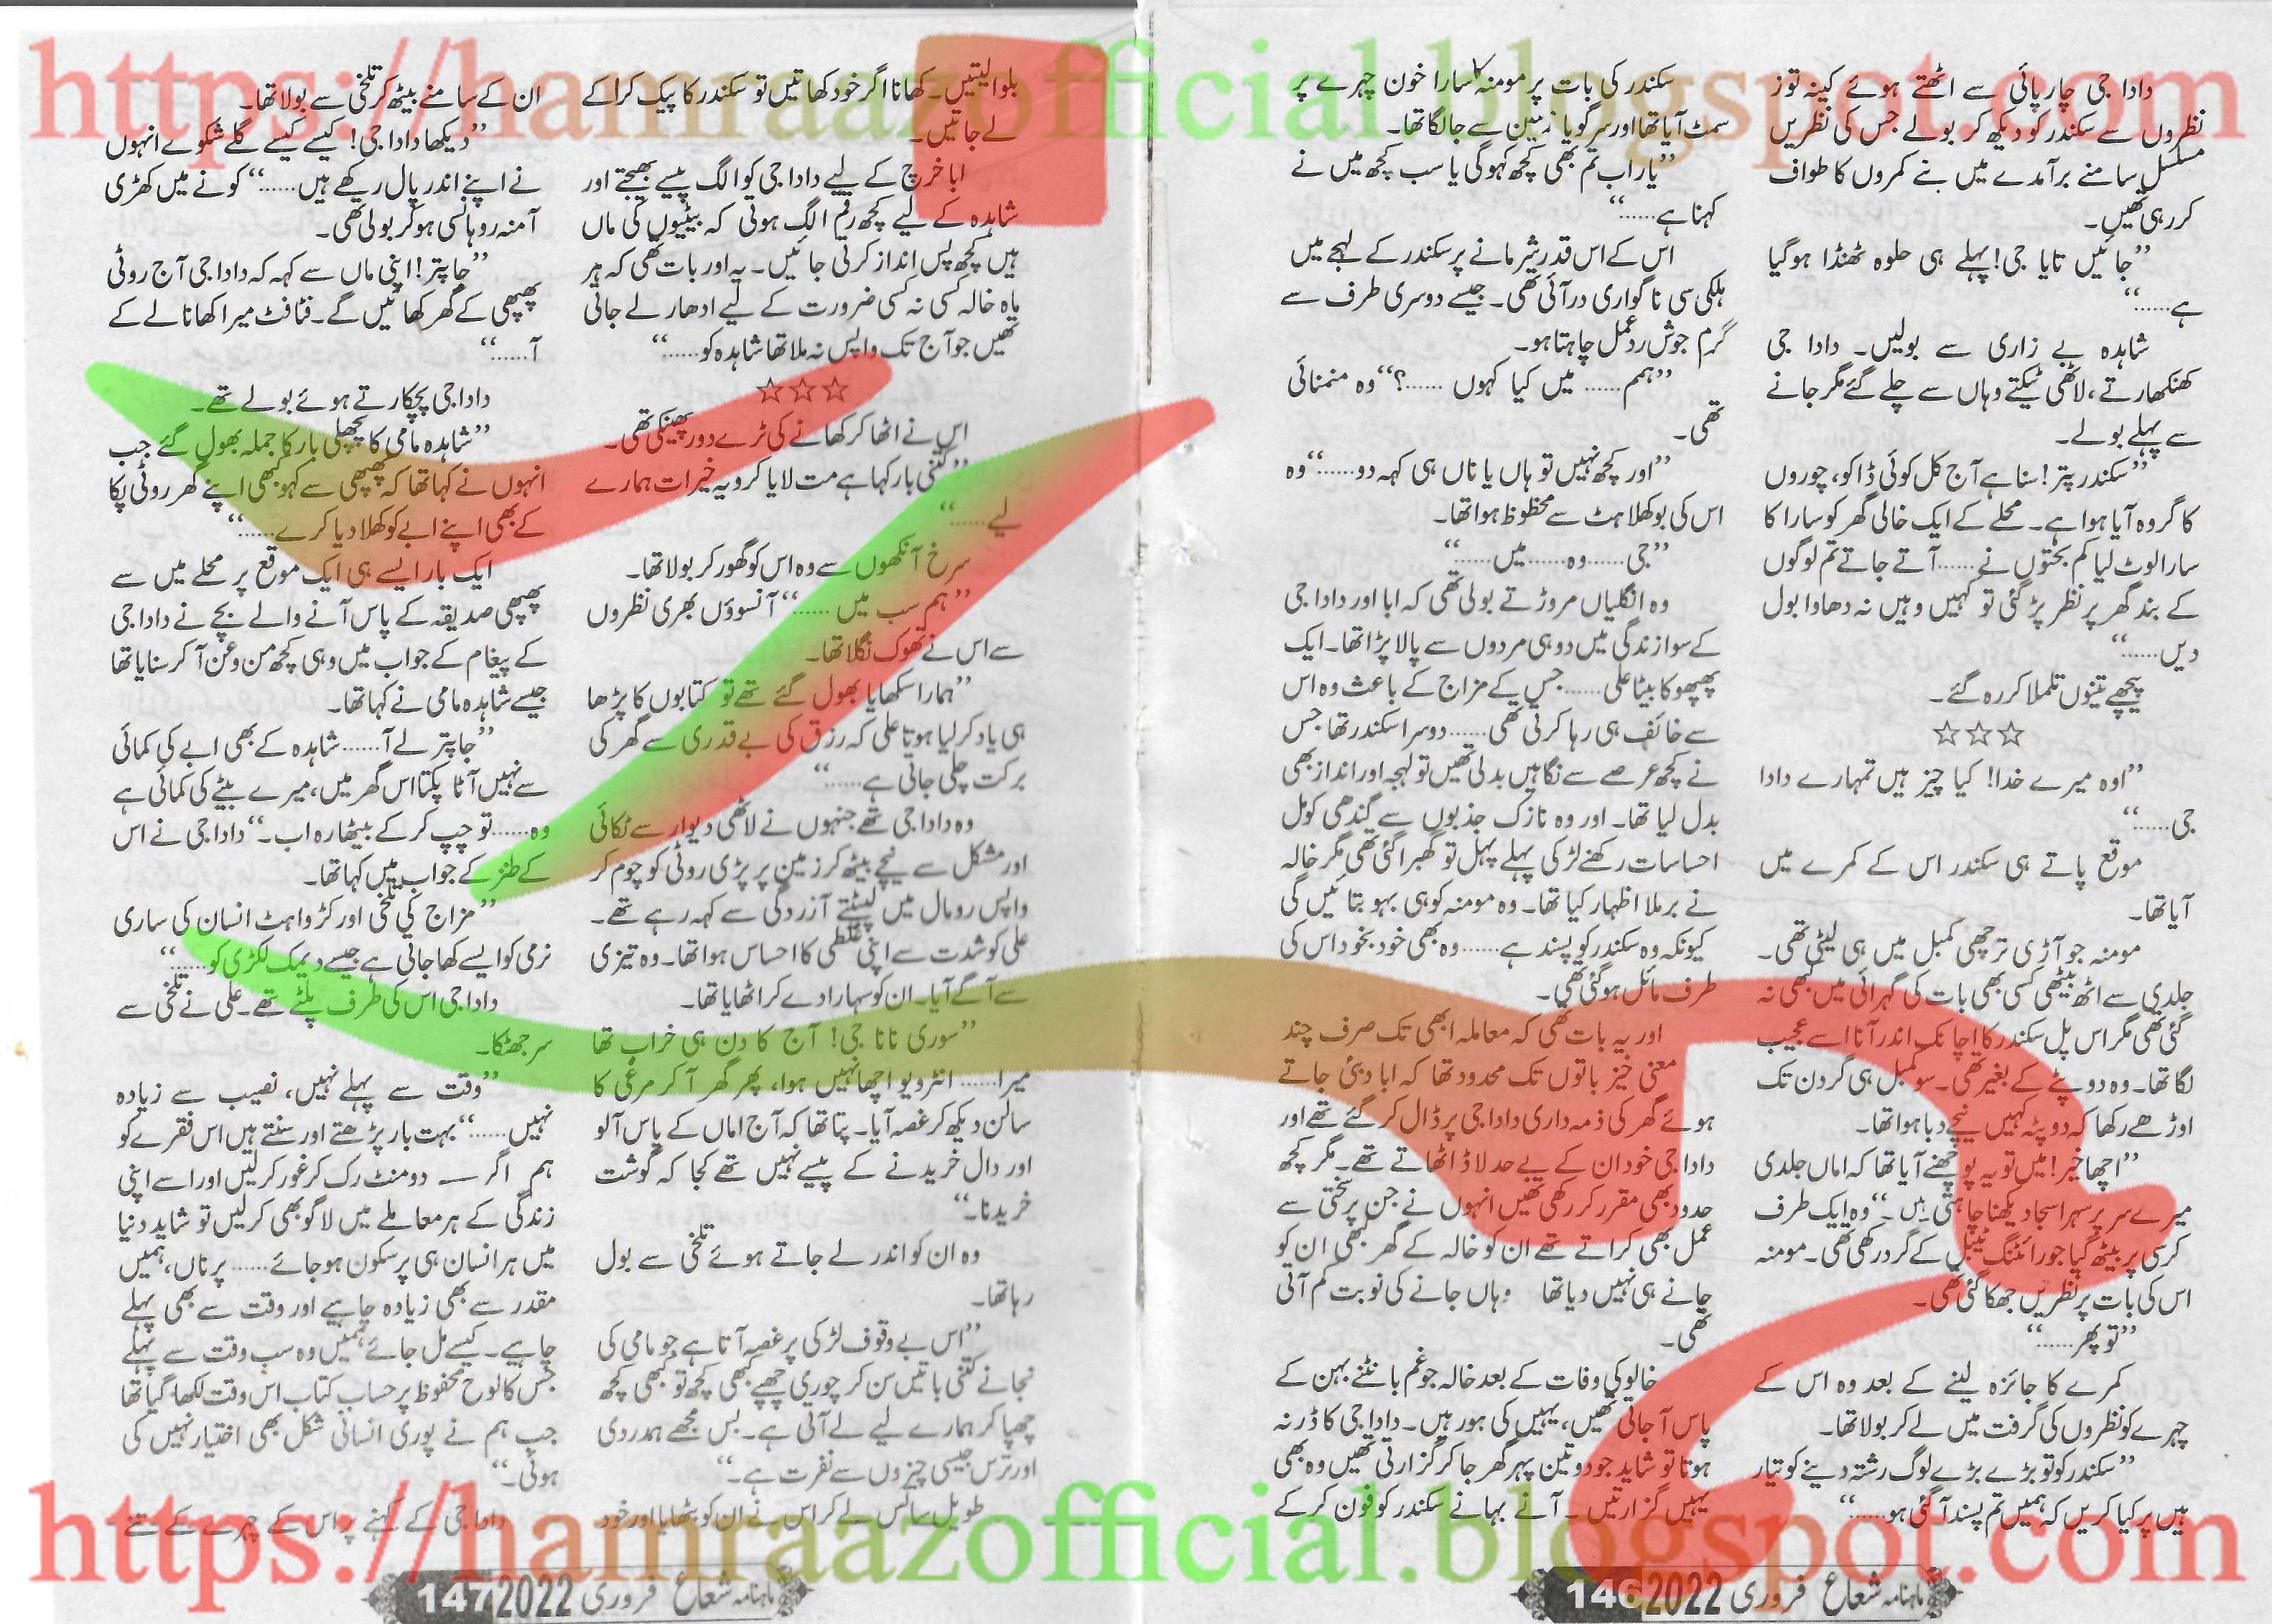 https://hamraazofficial.blogspot.com
دادا جی چارپائی سے اٹھتے ہوئے کینہ توز
نظروں سے سکندر کو دیکھ کر بولے جس کی نظریں
مسلسل سامنے برآمدے میں بنے کمروں کا طواف
کر رہی تھیں۔
”جائیں تایا جی! پہلے ہی حلوہ ٹھنڈا ہوگیا
ہے......“
شاہدہ بے زاری سے بولیں۔ دادا جی
کھنکھارتے، لاٹھی ٹیکتے وہاں سے چلے گئے مگر جانے
سے پہلے بولے۔
”سکندر پتر! سنا ہے آج کل کوئی ڈاکو، چوروں
کا گروہ آیا ہوا ہے۔ محلے کے ایک خالی گھر کو سارا کا
سارا لوٹ لیا کم بختوں نے...... آتے جاتے تم لوگوں
کے بند گھر پر نظر پڑ گئی تو کہیں وہیں نہ دھاوا بول
دیں......“
پیچھے تینوں تلملا کر رہ گئے۔
☆☆☆
”اوہ میرے خدا! کیا چیز ہیں تمہارے دادا
جی......“
موقع پاتے ہی سکندر اس کے کمرے میں
آیا تھا۔
مومنہ جو آڑی ترچھی کمبل میں ہی لیٹی تھی۔
جلدی سے اٹھ بیٹھی کسی بھی بات کی گہرائی میں کبھی نہ
گئی تھی مگر اس پل سکندر کا اچانک اندر آنا اسے عجیب
لگا تھا۔ وہ دوپٹے کے بغیر تھی۔ سو کمبل ہی گردن تک
اوڑھے رکھا کہ دوپٹہ کہیں نیچے دبا ہوا تھا۔
”اچھا خیر! میں تو یہ پوچھنے آیا تھا کہ اماں جلدی
میرے سر پر سہرا سجا دیکھنا چاہتی ہیں۔“ وہ ایک طرف
کرسی پر بیٹھ گیا جو رائٹنگ ٹیبل کے گرد رکھی تھی۔ مومنہ
اس کی بات پر نظریں جھکا گئی تھی۔
”تو پھر......“
کمرے کا جائزہ لینے کے بعد وہ اس کے
چہرے کو نظروں کی گرفت میں لے کر بولا تھا۔
”سکندر کو تو بڑے بڑے لوگ رشتہ دینے کو تیار
ہیں پر کیا کریں کہ ہمیں تم پسند آ گئی ہو......“
سکندر کی بات پر مومنہ کا سارا خون چہرے پر
سمٹ آیا تھا اور سر گویا زمین سے جا لگا تھا۔
”یار اب تم بھی کچھ کہو گی یا سب کچھ میں نے
کہنا ہے......“
اس کے اس قدر شرمانے پر سکندر کے لہجے میں
ہلکی سی ناگواری در آئی تھی۔ جیسے دوسری طرف سے
گرم جوش ردعمل چاہتا ہو۔
”ہمم...... میں کیا کہوں ......؟“ وہ منمنائی
تھی۔
”اور کچھ نہیں تو ہاں یا ناں ہی کہہ دو......“ وہ
اس کی بوکھلاہٹ سے محظوظ ہوا تھا۔
”جی...... وہ...... میں......“
وہ انگلیاں مروڑتے بولی تھی کہ ابا اور دادا جی
کے سوا زندگی میں دو ہی مردوں سے پالا پڑا تھا۔ ایک
پھپھو کا بیٹا علی...... جس کے مزاج کے باعث وہ اس
سے خائف ہی رہا کرتی تھی...... دوسرا سکندر تھا جس
نے کچھ عرصے سے نگاہیں بدلی تھیں تو لہجہ اور انداز بھی
بدل لیا تھا۔ اور وہ نازک جذبوں سے گندھی کومل
احساسات رکھنے لڑکی پہلے پہل تو گھبرا گئی تھی مگر خالہ
نے برملا اظہار کیا تھا۔ وہ مومنہ کو ہی بہو بتائیں گی
کیونکہ وہ سکندر کو پسند ہے...... وہ بھی خود بخود اس کی
طرف مائل ہو گئی تھی۔
اور یہ بات تھی کہ معاملہ ابھی تک صرف چند
معنی خیز باتوں تک محدود تھا کہ ابا دبئی جاتے
ہوئے گھر کی ذمہ داری دادا جی پر ڈال کر گئے تھے اور
دادا جی خود ان کے بے حد لاڈ اٹھاتے تھے۔ مگر کچھ
حدود بھی مقرر کر رکھی تھیں انہوں نے جن پر سختی سے
عمل بھی کراتے تھے ان کو خالہ کے گھر کبھی ان کو
جانے ہی نہیں دیا تھا وہاں جانے کی نوبت کم آتی
تھی۔
خالو کی وفات کے بعد خالہ جو غم بانٹنے بہن کے
پاس آ جاتی تھیں، یہیں کی ہو رہیں۔ دادا جی کا ڈر نہ
ہوتا تو شاید جو دو تین پہر گھر جا کر گزارتی تھیں وہ بھی
یہیں گزارتیں۔ آنے بہانے سکندر کو فون کر کے
ماہنامہ شعاع فروری 2022 146
بلوا لیتیں۔ کھانا اگر خود کھاتیں تو سکندر کا پیک کرا کے
لے جاتیں۔
ابا خرچ کے لیے دادا جی کو الگ پیسے بھیجتے اور
شاہدہ کے لیے کچھ رقم الگ ہوتی کہ بیٹیوں کی ماں
ہیں کچھ پس انداز کرتی جائیں۔ یہ اور بات تھی کہ ہر
ماہ خالہ کسی نہ کسی ضرورت کے لیے ادھار لے جاتی
تھیں جو آج تک واپس نہ ملا تھا شاہدہ کو......“
☆☆☆
اس نے اٹھا کر کھانے کی ٹرے دور پھینکی تھی۔
”کتنی بار کہا ہے مت لایا کرو یہ خیرات ہمارے
لیے......“
سرخ آنکھوں سے وہ اس کو گھور کر بولا تھا۔
”ہم سب میں ......“ آنسوؤں بھری نظروں
سے اس نے تھوک نگلا تھا۔
”ہمارا سکھایا بھول گئے تھے تو کتابوں کا پڑھا
ہی یاد کر لیا ہوتا علی کہ رزق کی بے قدری سے گھر کی
برکت چلی جاتی ہے......“
وہ دادا جی تھے جنہوں نے لاٹھی دیوار سے ٹکائی
اور مشکل سے نیچے بیٹھ کر زمین پر پڑی روٹی کو چوم کر
واپس رومال میں لپیٹتے آزردگی سے کہہ رہے تھے۔
علی کو شدت سے اپنی غلطی کا احساس ہوا تھا۔ وہ تیزی
سے آگے آیا۔ ان کو سہارا دے کر اٹھایا تھا۔
”سوری نانا جی! آج کا دن ہی خراب تھا
میرا...... انٹرویو اچھا نہیں ہوا، پھر گھر آ کر مرغی کا
سالن دیکھ کر غصہ آیا۔ پتا تھا کہ آج اماں کے پاس آلو
اور دال خریدنے کے پیسے نہیں تھے کجا کہ گوشت
خریدنا۔“
وہ ان کو اندر لے جاتے ہوئے تلخی سے بول
رہا تھا۔
”اس بے وقوف لڑکی پر غصہ آتا ہے جو مامی کی
نجانے کتنی باتیں سن کر چوری چھپے کبھی کچھ تو کبھی کچھ
چھپا کر ہمارے لیے لے آتی ہے۔ بس مجھے ہمدردی
اور ترس جیسی چیزوں سے نفرت ہے۔“
طویل سانس لے کر اس نے ان کو بٹھایا اور خود
ان کے سامنے بیٹھ کر تلخی سے بولا تھا۔
”دیکھا دادا جی! کیسے کیسے گلے شکوے انہوں
نے اپنے اندر پال رکھے ہیں......“ کونے میں کھڑی
آمنہ روہانسی ہو کر بولی تھی۔
”جا پتر! اپنی ماں سے کہہ کہ دادا جی آج روٹی
پھپھی کے گھر کھائیں گے۔ فٹافٹ میرا کھانا لے کے
آ......“
دادا جی پچکارتے ہوئے بولے تھے۔
”شاہدہ مامی کا پچھلی بار کا جملہ بھول گئے جب
انہوں نے کہا تھا کہ پھپھی سے کہو کبھی اپنے گھر روٹی پکا
کے بھی اپنے ابے کو کھلا دیا کرے......“
ایک بار ایسے ہی ایک موقع پر محلے میں سے
پھپھی صدیقہ کے پاس آنے والے بچے نے دادا جی
کے پیغام کے جواب میں وہی کچھ من و عن آ کر سنایا تھا
جیسے شاہدہ مامی نے کہا تھا۔
”جا پتر لے آ...... شاہدہ کے بھی ابے کی کمائی
سے نہیں آٹا پکتا اس گھر میں، میرے بیٹے کی کمائی ہے
وہ...... تو چپ کر کے بیٹھا رہ اب۔“ دادا جی نے اس
کے طنز کے جواب میں کہا تھا۔
”مزاج کی تلخی اور کڑواہٹ انسان کی ساری
نرمی کو ایسے کھا جاتی ہے جیسے دیمک لکڑی کو......“
دادا جی اس کی طرف پلٹے تھے۔ علی نے تلخی سے
سر جھٹکا۔
”وقت سے پہلے نہیں، نصیب سے زیادہ
نہیں......“ بہت بار پڑھتے اور سنتے ہیں اس فقرے کو
ہم اگر — دو منٹ رک کر غور کر لیں اور اسے اپنی
زندگی کے ہر معاملے میں لاگو بھی کر لیں تو شاید دنیا
میں ہر انسان ہی پرسکون ہو جائے...... پر ناں، ہمیں
مقدر سے بھی زیادہ چاہیے اور وقت سے بھی پہلے
چاہیے۔ کیسے مل جائے ہمیں وہ سب وقت سے پہلے
جس کا لوح محفوظ پر حساب کتاب اس وقت لکھا گیا تھا
جب ہم نے پوری انسانی شکل بھی اختیار نہیں کی
ہوتی۔“
دادا جی کے کہنے پر اس کے چہرے کے تنے
ماہنامہ شعاع فروری 2022 147
https://hamraazofficial.blogspot.com